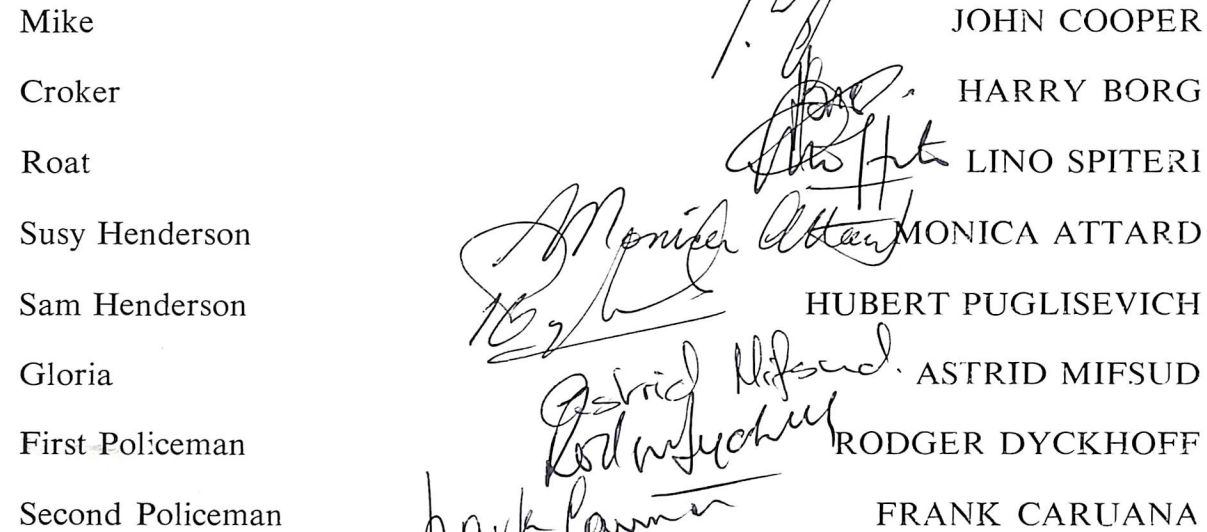 Mike JOHN COOPER
Croker HARRY BORG
Roat LINO SPITERI
Susy Henderson Monica Attard MONICA ATTARD
Sam Henderson HUBERT PUGLISEVICH
Gloria Astrid Mifsud. ASTRID MIFSUD
First Policeman RODGER DYCKHOFF
Second Policeman FRANK CARUANA